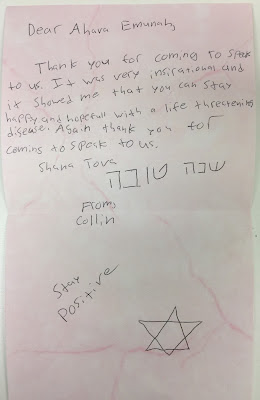 Dear Ahava Emunah,
Thank you for coming to speak
to us. It was very inspirational and
it showed me that you can stay
happy and hopefull with a life threatening
disease. Again thank you for
coming to speak to us.
Shana Tova
שנה טובה
From,
Collin
Stay
Positive